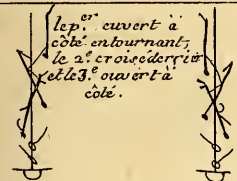 le p.er ouvert à
côté en tournant,
le 2.e croisé derrier
et le 3.e ouvert à
côté.